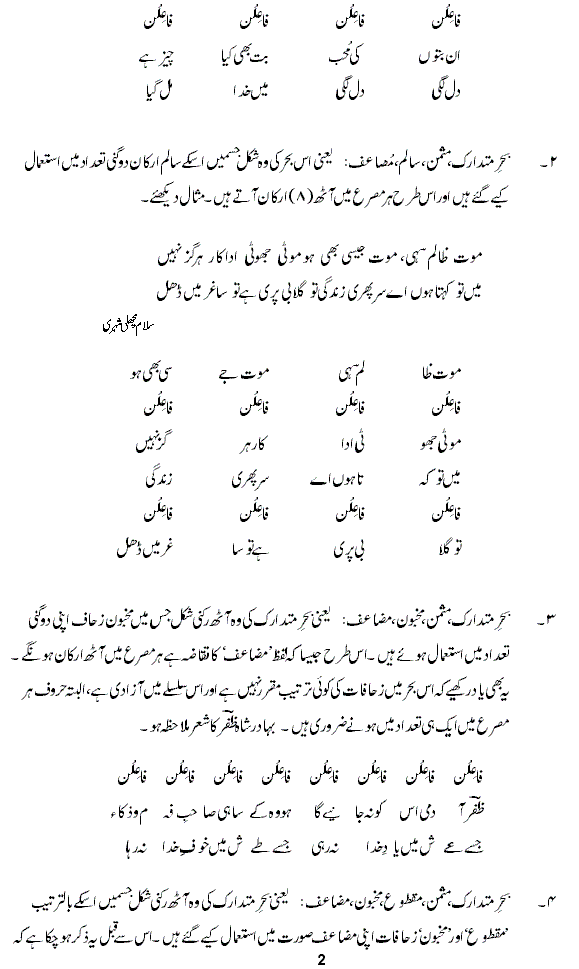 فاعِلُن فاعِلُن فاعِلُن فاعِلُن
ان بتوں کی مُحب بت بھی کیا چیز ہے
دل لگی دل لگی میں خدا مل گیا
۲۔ بحرِ متدارک، مثمن، سالم، مُضاعف: یعنی اس بحر کی وہ شکل جسمیں اسکے سالم ارکان دوگنی تعداد میں استعمال
کیے گئے ہیں اور اس طرح ہر مصرع میں آٹھ (۸) ارکان آتے ہیں۔ مثال دیکھئے۔
موت ظالم سہی، موت جیسی بھی ہو موٹی جھوٹی اداکار ہرگز نہیں
میں تو کہتا ہوں اے سرپھری زندگی تو گلابی پری ہے تو ساغر میں ڈھل
سلام مچھلی شہری
موت ظا لم سہی موت جے سی بھی ہو
فاعِلُن فاعِلُن فاعِلُن فاعِلُن
موٹی جھو ٹی ادا کار ہر گز نہیں
میں تو کہ تا ہوں اے سرپھری زندگی
فاعِلُن فاعِلُن فاعِلُن فاعِلُن
تو گلا بی پری ہے تو سا غر میں ڈھل
۳۔ بحرِ متدارک، مثمن، مخبون، مضاعف: یعنی بحرِ متدارک کی وہ آٹھ رکنی شکل جس میں مخبون زحاف اپنی دوگنی
تعداد میں استعمال ہوئے ہیں۔ اس طرح جیسا کہ لفظ ’مضاعف‘ کا تقاضہ ہے ہر مصرع میں آٹھ ارکان ہونگے۔
یہ بھی یاد رکھیے کہ اس بحر میں زحافات کی کوئی ترتیب مقرر نہیں ہے اور اس سلسلے میں آزادی ہے، البتہ حروف ہر
مصرع میں ایک ہی تعداد میں ہونے ضروری ہیں۔ بہادر شاہ ظفؔر کا شعر ملاحظہ ہو۔
فاعِلُن فاعِلُن فاعِلُن فاعِلُن فاعِلُن فاعِلُن فاعِلُن فاعِلُن
ظفؔر آ دمی اس کو نہ جا نیے گا ہو وہ کے سا ہی صا حبِ فہ م و ذکاء
جسے عے ش میں یا دِ خدا نہ رہی جسے طے ش میں خوفِ خدا نہ رہا
۴۔ بحرِ متدارک، مثمن، مقطوع، مخبون، مضاعف: یعنی بحرِ متدارک کی وہ آٹھ رکنی شکل جسمیں اسکے بالترتیب
’مقطوع‘ اور ’مخبون‘ زحافات اپنی مضاعف صورت میں استعمال کیے گئے ہیں۔ اس سے قبل یہ ذکر ہو چکا ہے کہ
2